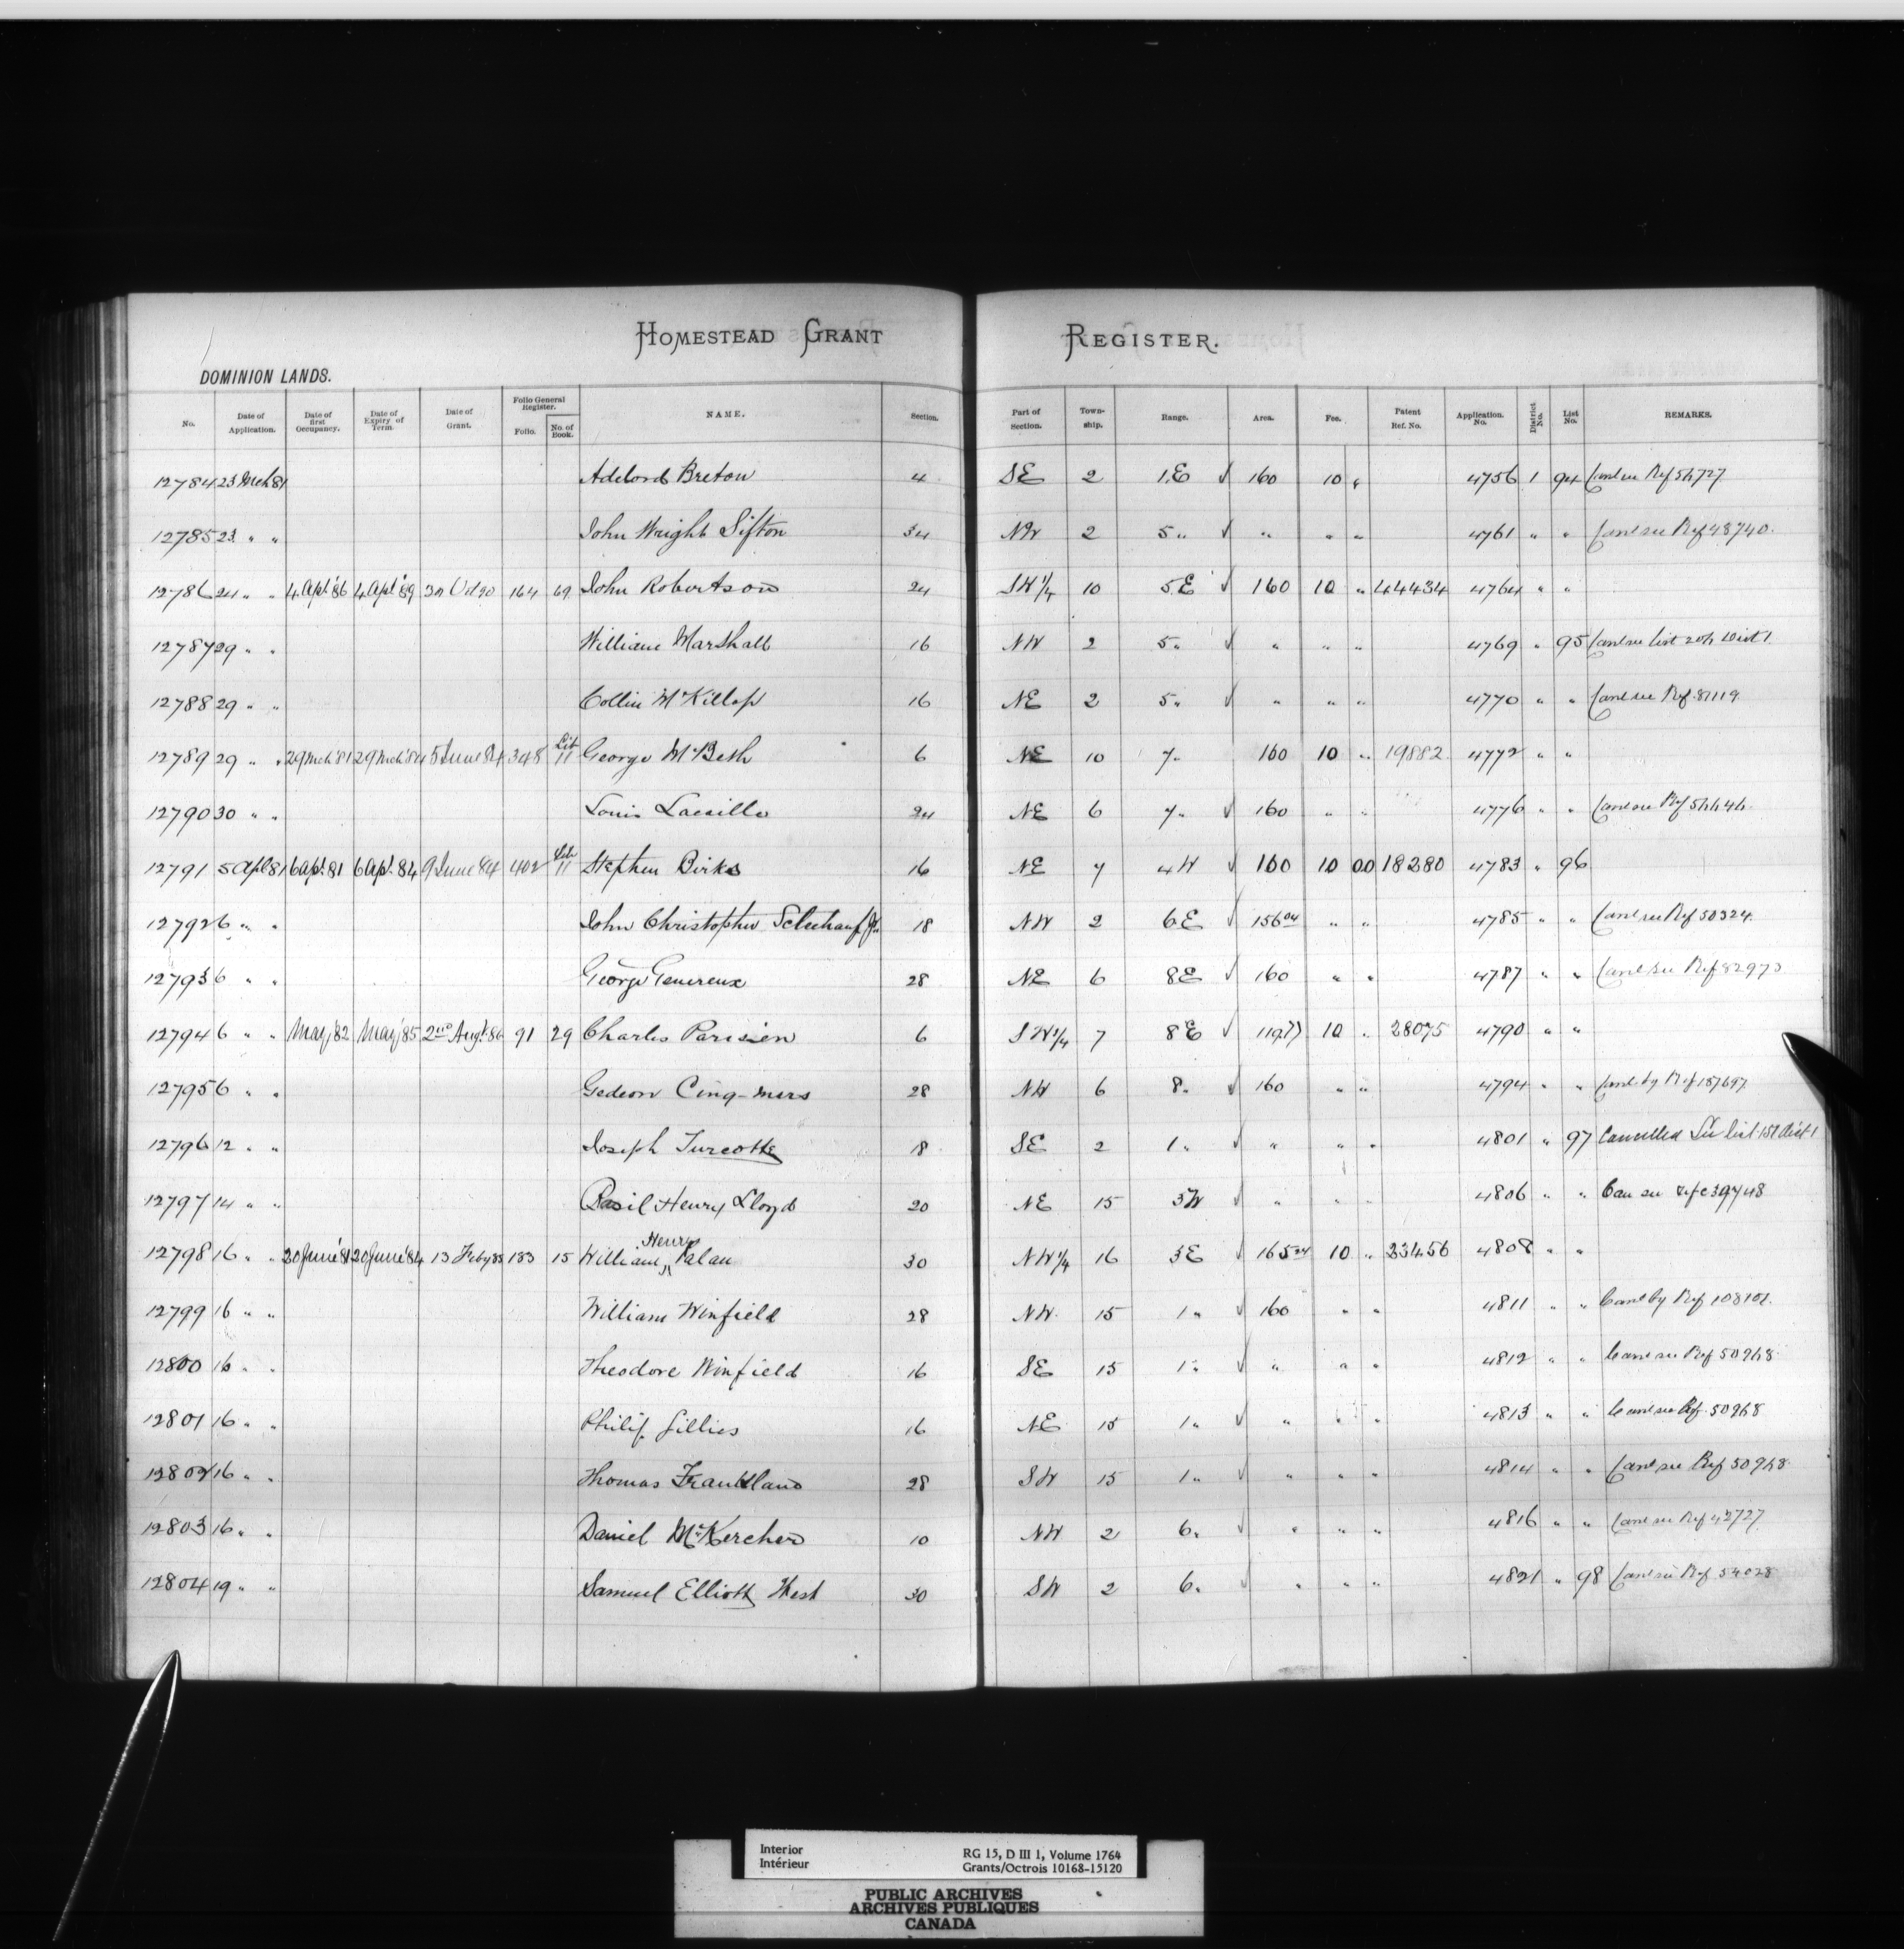 HOMESTEAD GRANT REGISTER.
DOMINION LANDS.
No. Date of Application. Date of first Occupancy. Date of Expiry of Term. Date of Grant. Folio General Register. Folio. No. of Book. NAME. Section. Part of Section. Township. Range. Area. Fee. Patent Ref. No. Application. No. District No. List No. REMARKS.
12784 23 Mch 81 Adelord Breton 4 SE 2 1 E √ 160 10 " 4756 1 94 Canl see Ref
12785 23 " " John Wright Sifton 34 NW 2 5 " √ " " " 4761 " " Canl see Ref 48740.
12786 24 " " 4 Apl '86 4 Apl '89 30 Oct 90 164 69 John Robertson 24 SW 1/4 10 5 E √ 160 10 " 44434 4764 " "
12787 29 " " William Marshall 16 NW 2 5 " √ " " " 4769 " 95 Canl see list Dist 1.
12788 29 " " Collin McKillop 16 NE 2 5 " √ " " " 4770 " " Canl see Ref 81119.
12789 29 " " 29 Mch '81 29 Mch '84 5 June 84 348 Lib 11 George McBeth 6 NE 10 7 " 160 10 " 19882 4772 " "
12790 30 " " Louis Lacaille 24 NE 6 7 " √ 160 " " 4776 " " Canl see Ref
12791 5 Apl 81 6 Apl. 81 6 Apl. 84 9 June 84 402 Lib 11 Stephen Birks 16 NE 7 4 W √ 160 10 00 18280 4783 " 96
12792 6 " " John Christopher Jr. 18 NW 2 6 E √ 156 04 " " 4785 " " Canl see Ref 50324.
12793 6 " " George Genereux 28 NE 6 8 E √ 160 " " 4787 " " Canl see Ref 82973
12794 6 " " May '82 May '85 2nd Augt. 86 91 29 Charles Parisien 6 SW 1/4 7 8 E √ 10 " 28075 4790 " "
12795 6 " " Gedeon Cinq-mars 28 NW 6 8 " √ 160 " " 4794 " " Canl by Ref 187697.
12796 12 " " Joseph Turcotte 18 SE 2 1 " √ " " " 4801 " 97 Cancelled See list 151 Dist 1
12797 14 " " Basil Henry Lloyd 20 NE 15 3 W √ " " " 4806 " " Can see refce 39748
12798 16 " " 20 June '81 20 June '84 13 Feby 85 183 15 William Henry Palan 30 NW 1/4 16 3 E √ 165 24 10 " 23456 4808 " "
12799 16 " " William Winfield 28 NW. 15 1 " √ 160 " " 4811 " " Canl by Ref 108101.
12800 16 " " Theodore Winfield 16 SE 15 1 " √ " " " 4812 " " Canl see Ref
12801 16 " " Philip Gillies 16 NE 15 1 " √ " " " 4813 " " Canl see Ref.
12802 16 " " Thomas Frankland 28 SW 15 1 " √ " " " 4814 " " Canl see Ref
12803 16 " " Daniel McKercher 10 NW 2 6 " √ " " " 4816 " " Canl see Ref 42727
12804 19 " " Samuel Elliott West 30 SW 2 6 " √ " " " 4821 " 98 Canl see Ref 54028
Interior RG 15, D III 1, Volume 1764
Intérieur Grants/Octrois 10168-15120
PUBLIC ARCHIVES
ARCHIVES PUBLIQUES
CANADA